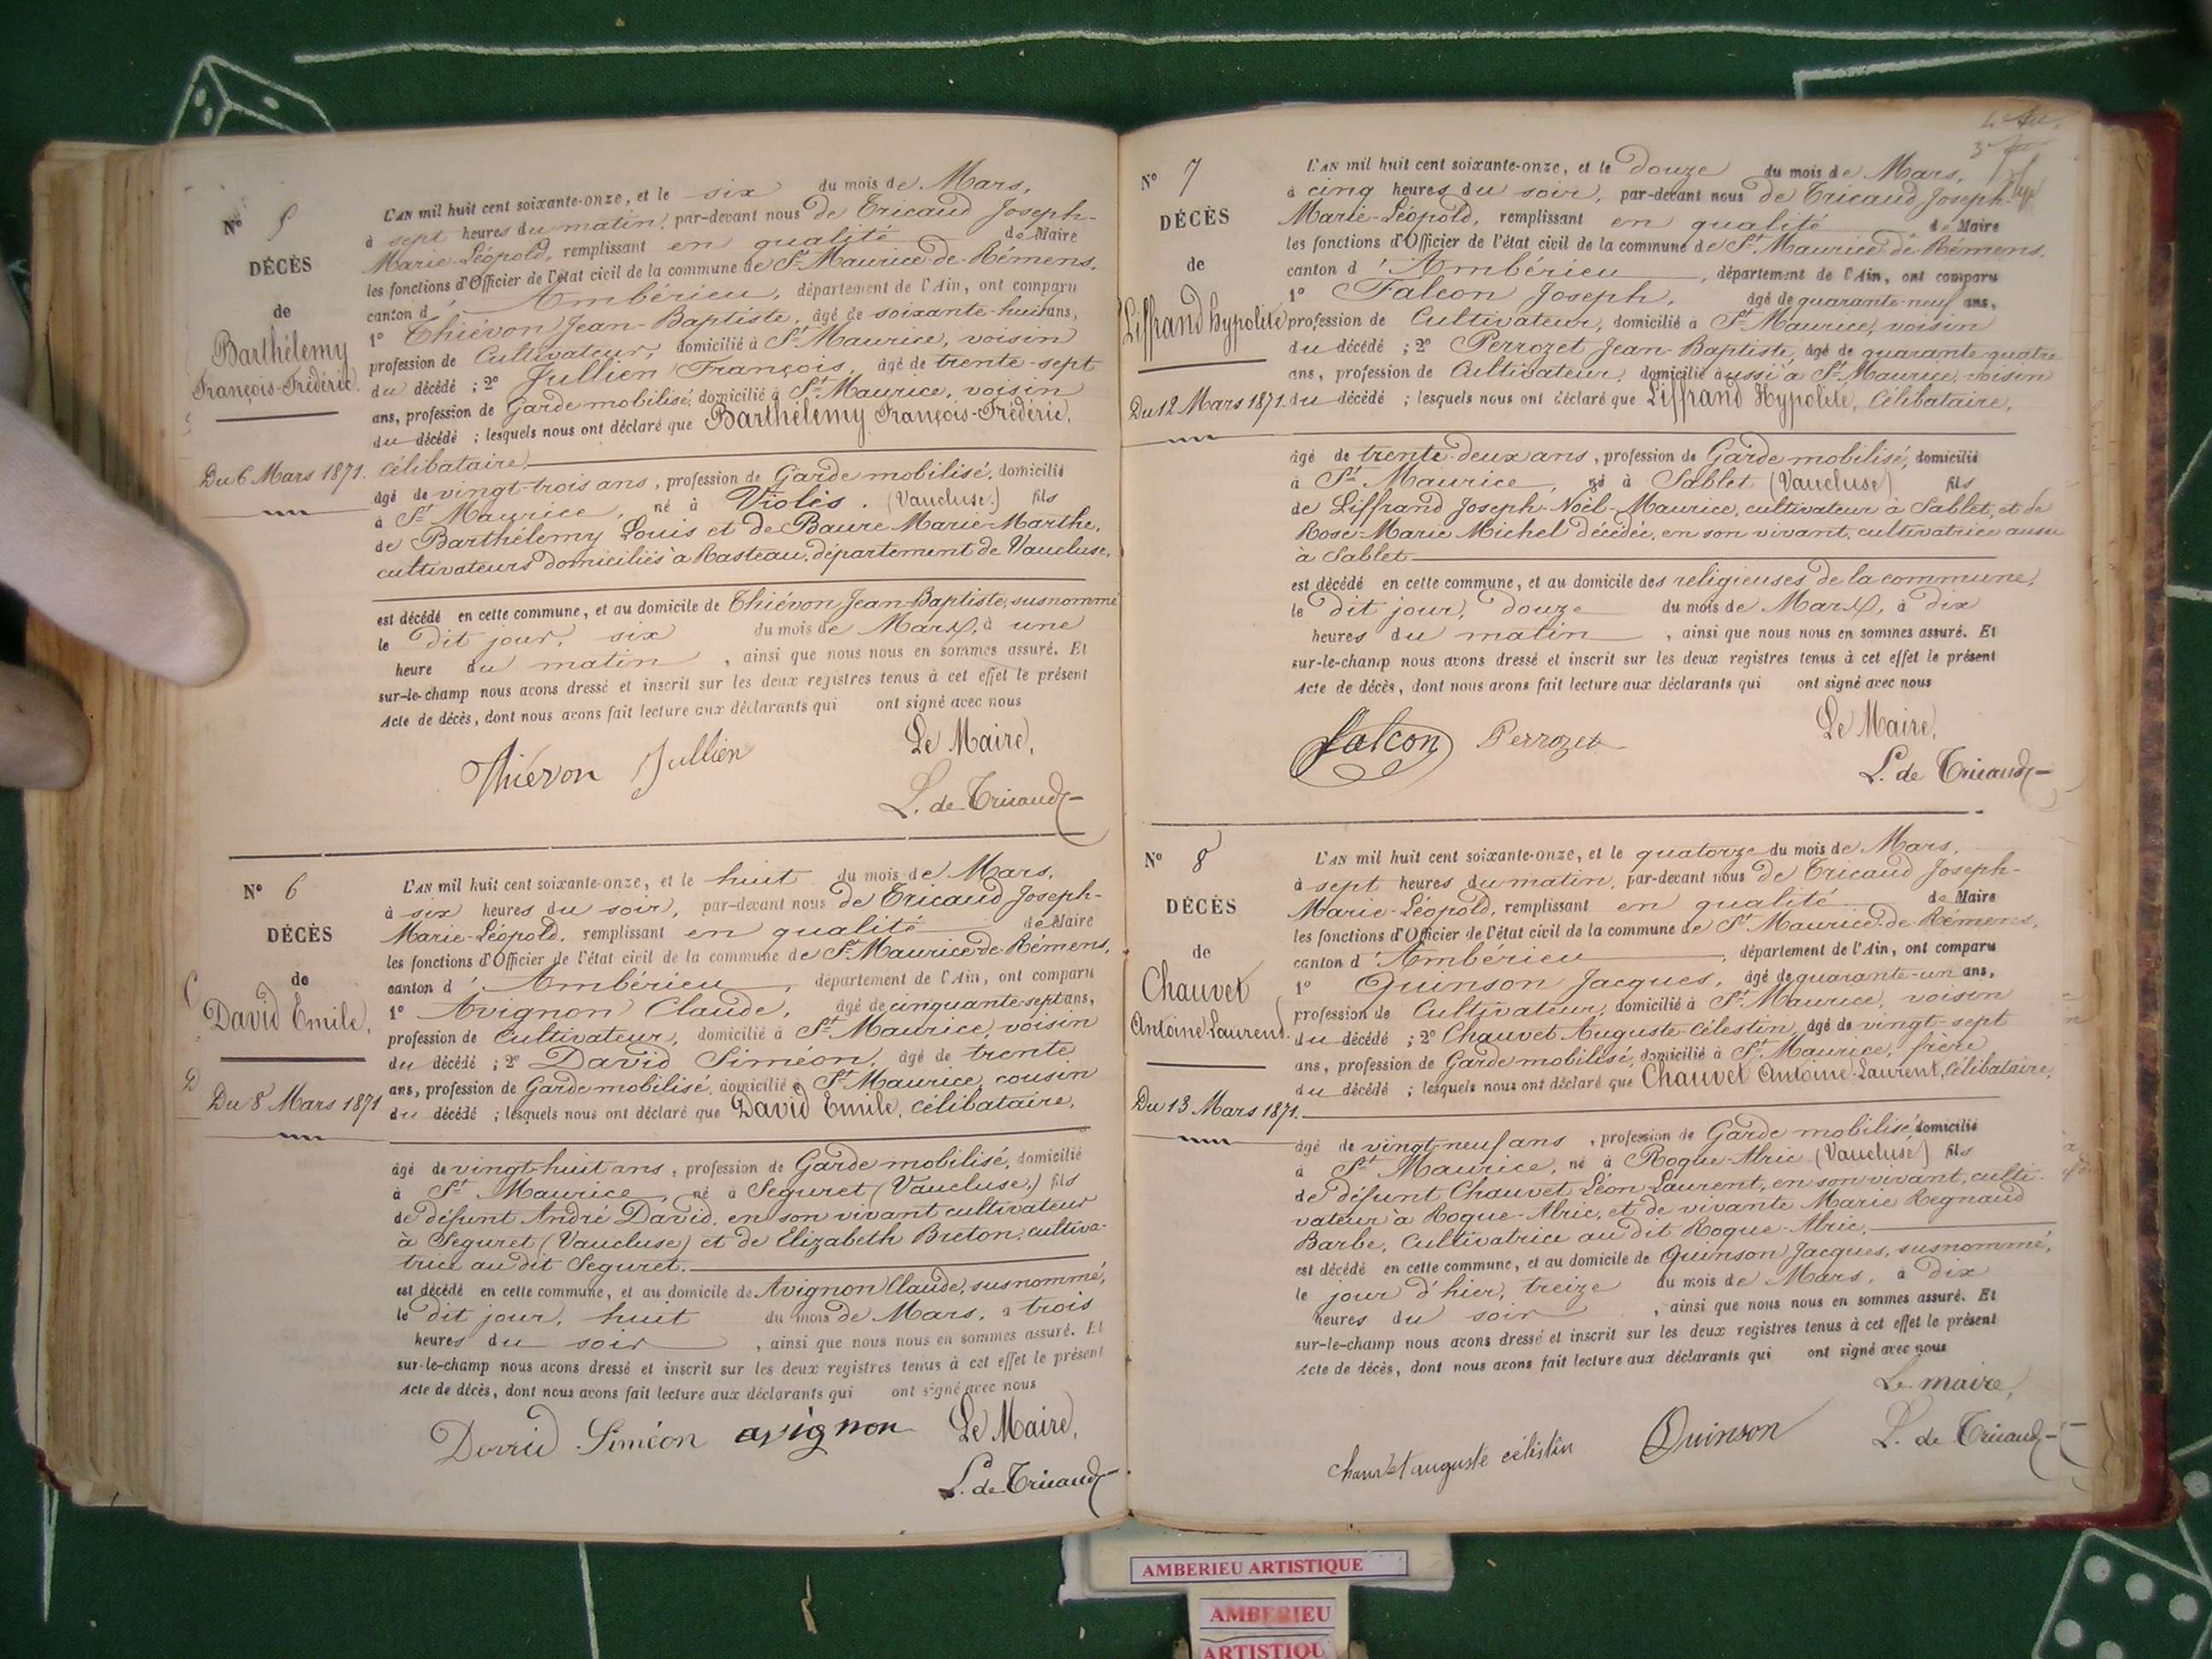 N° 5
DÉCÈS
de
Barthélemy
François-Frédéric.
Du 6 Mars 1871.
L'AN mil huit cent soixante-onze, et le six du mois de Mars,
à sept heures du matin, par-devant nous de Tricaud Joseph-
Marie-Léopold, remplissant en qualité de Maire
les fonctions d'Officier de l'état civil de la commune de St Maurice-de-Rémens,
canton d'Ambérieu, département de l'Ain, ont comparu
1° Thiévon Jean-Baptiste, âgé de soixante-huit ans,
profession de Cultivateur, domicilié à St Maurice, voisin
du décédé ; 2° Jullien François, âgé de trente-sept
ans, profession de Garde mobilisé, domicilié à St Maurice, voisin
du décédé ; lesquels nous ont déclaré que Barthélemy François-Frédéric,
célibataire,
âgé de vingt-trois ans, profession de Garde mobilisé, domicilié
à St Maurice, né à Violès. (Vaucluse.) fils
de Barthélemy Louis et de Baure Marie-Marthe,
cultivateurs domiciliés à Rasteau, département de Vaucluse,
est décédé en cette commune, et au domicile de Thiévon Jean-Baptiste, susnommé
le dit jour, six du mois de Mars, à une
heure du matin, ainsi que nous nous en sommes assuré. Et
sur-le-champ nous avons dressé et inscrit sur les deux registres tenus à cet effet le présent
Acte de décès, dont nous avons fait lecture aux déclarants qui ont signé avec nous
Le Maire,
Thiévon Jullien
L. de Tricaud
N° 6
DÉCÈS
de
David Emile,
Du 8 Mars 1871
L'AN mil huit cent soixante-onze, et le huit du mois de Mars,
à six heures du soir, par-devant nous de Tricaud Joseph-
Marie-Léopold, remplissant en qualité de Maire
les fonctions d'Officier de l'état civil de la commune de St Maurice-de-Rémens,
canton d'Ambérieu, département de l'Ain, ont comparu
1° Avignon Claude, âgé de cinquante-sept ans,
profession de Cultivateur, domicilié à St Maurice, voisin
du décédé ; 2° David Siméon, âgé de trente
ans, profession de Garde mobilisé, domicilié à St Maurice, cousin
du décédé ; lesquels nous ont déclaré que David Emile, célibataire,
âgé de vingt-huit ans, profession de Garde mobilisé, domicilié
à St Maurice, né à Seguret (Vaucluse,) fils
de défunt André David, en son vivant cultivateur
à Seguret (Vaucluse) et de Elizabeth Breton, cultiva-
trice au dit Seguret.
est décédé en cette commune, et au domicile de Avignon Claude, susnommé,
le dit jour, huit du mois de Mars, à trois
heures du soir, ainsi que nous nous en sommes assuré. Et
sur-le-champ nous avons dressé et inscrit sur les deux registres tenus à cet effet le présent
Acte de décès, dont nous avons fait lecture aux déclarants qui ont signé avec nous
David Siméon avignon Le Maire,
L. de Tricaud
N° 7
DÉCÈS
de
Liffrand Hypolite
Du 12 Mars 1871.
L'AN mil huit cent soixante-onze, et le douze du mois de Mars,
à cinq heures du soir, par-devant nous de Tricaud Joseph-
Marie-Léopold, remplissant en qualité de Maire
les fonctions d'Officier de l'état civil de la commune de St Maurice-de-Rémens,
canton d'Ambérieu, département de l'Ain, ont comparu
1° Falcon Joseph, âgé de quarante-neuf ans,
profession de Cultivateur, domicilié à St Maurice, voisin
du décédé ; 2° Perrozet Jean-Baptiste, âgé de quarante-quatre
ans, profession de Cultivateur, domicilié aussi à St Maurice, voisin
du décédé ; lesquels nous ont déclaré que Liffrand Hypolite, Célibataire,
âgé de trente-deux ans, profession de Garde mobilisé, domicilié
à St Maurice, né à Sablet (Vaucluse) fils
de Liffrand Joseph-Noël-Maurice, cultivateur à Sablet, et de
Rose-Marie Michel décédée, en son vivant, cultivatrice aussi
à Sablet
est décédé en cette commune, et au domicile des religieuses de la commune,
le dit jour, douze du mois de Mars, à dix
heures du matin, ainsi que nous nous en sommes assuré. Et
sur-le-champ nous avons dressé et inscrit sur les deux registres tenus à cet effet le présent
Acte de décès, dont nous avons fait lecture aux déclarants qui ont signé avec nous
Le Maire,
Falcon Perrozet
L. de Tricaud
N° 8
DÉCÈS
de
Chauvet
Antoine Laurent.
Du 13 Mars 1871.
L'AN mil huit cent soixante-onze, et le quatorze du mois de Mars,
à sept heures du matin, par-devant nous de Tricaud Joseph-
Marie-Léopold, remplissant en qualité de Maire
les fonctions d'Officier de l'état civil de la commune de St Maurice-de-Rémens,
canton d'Ambérieu, département de l'Ain, ont comparu
1° Quinson Jacques, âgé de quarante-un ans,
profession de Cultivateur, domicilié à St Maurice, voisin
du décédé ; 2° Chauvet Auguste-Célestin, âgé de vingt-sept
ans, profession de Garde mobilisé, domicilié à St Maurice, frère
du décédé ; lesquels nous ont déclaré que Chauvet Antoine-Laurent, Célibataire,
âgé de vingt-neuf ans, profession de Garde mobilisé domicilié
à St Maurice, né à Roque-Alric (Vaucluse) fils
de défunt Chauvet Léon Laurent, en son vivant, culti-
vateur à Roque-Alric, et de vivante Marie Regnaud
Barbe, Cultivatrice au dit Roque-Alric,
est décédé en cette commune, et au domicile de Quinson Jacques, susnommé,
le jour d'hier, treize du mois de Mars, à dix
heures du soir, ainsi que nous nous en sommes assuré. Et
sur-le-champ nous avons dressé et inscrit sur les deux registres tenus à cet effet le présent
Acte de décès, dont nous avons fait lecture aux déclarants qui ont signé avec nous
Le maire,
Chauvet auguste célistin Quinson L. de Tricaud
AMBERIEU ARTISTIQUE
AMBERIEU
ARTISTIQU